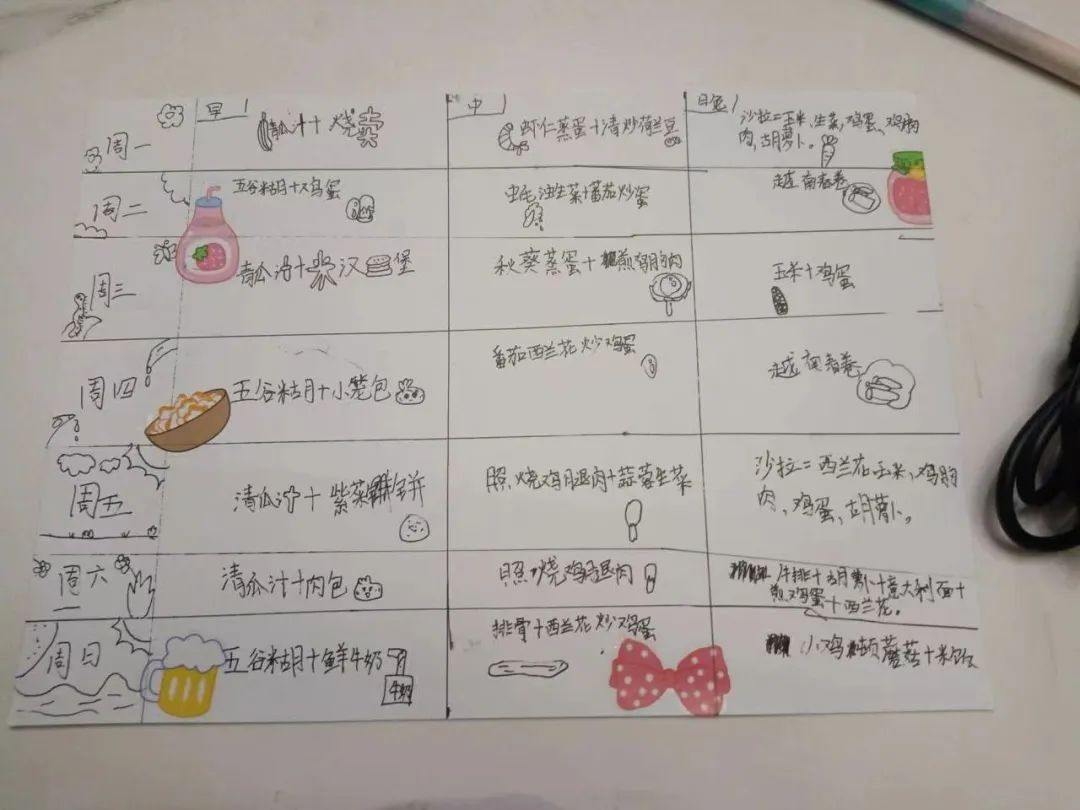 早 中 晚
周一 青瓜汁+烧卖 虾仁蒸蛋+清炒荷兰豆 沙拉=玉米,生菜,鸡蛋、鸡胸
肉,胡萝卜。
周二 五谷糊+鸡蛋 蚝油生菜+番茄炒蛋 越南春卷
周三 青瓜汁+汉堡 秋葵蒸蛋+煎鸡胸肉 玉米+鸡蛋
周四 五谷糊+小笼包 番茄西兰花炒鸡蛋 越南春卷
周五 清瓜汁+紫菜饼 照烧鸡腿肉+蒜蓉生菜 沙拉=西兰花玉米,鸡胸
肉、鸡蛋,胡萝卜。
周六 清瓜汁+肉包 照烧鸡腿肉 牛排+胡萝卜+意大利面+
煎鸡蛋+西兰花。
周日 五谷糊+鲜牛奶 排骨+西兰花炒鸡蛋 小鸡炖蘑菇+米饭
牛奶